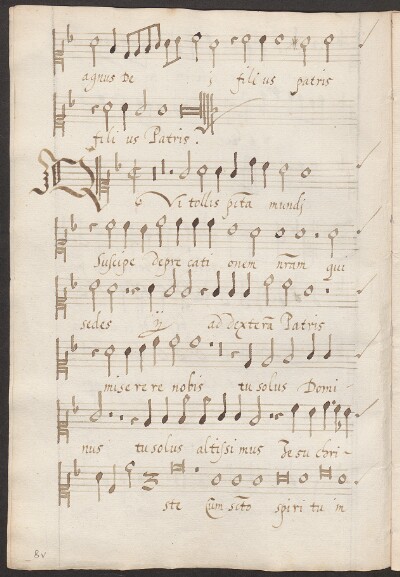 agnus De i filius patris
filius Patris.
Qui tollis pcta mundj
Suscipe deprecationem nram qui
sedes ij ad dexterã Patris
miserere nobis tu solus Domi-
nus tu solus altissimus Jesu chri-
ste Cum scto spiritu in
8v